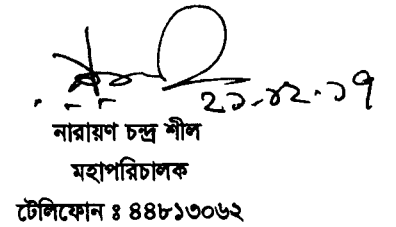 ২১.১২.১৭
নারায়ণ চন্দ্র শীল
মহাপরিচালক
টেলিফোন ঃ ৪৪৮১৩০৬২